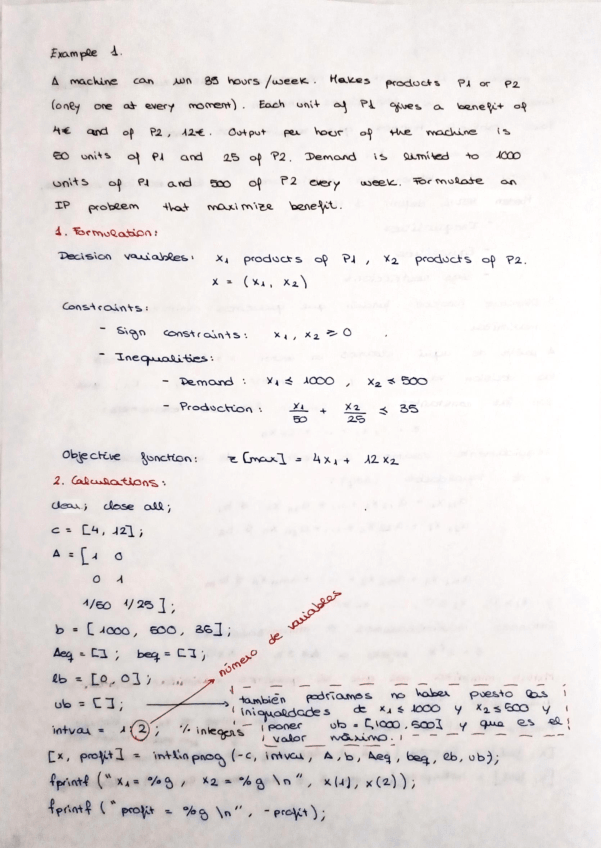 Example 1.
A machine can run 35 hours/week. Makes products P1 or P2
(only one at every moment). Each unit of P1 gives a benefit of
4€ and of P2, 12€. Output per hour of the machine is
50 units of P1 and 25 of P2. Demand is limited to 1000
units of P1 and 500 of P2 every week. Formulate an
IP problem that maximize benefit.
1. Formulation:
Decision variables: x1 products of P1, x2 products of P2.
x = (x1, x2)
Constraints:
- Sign constraints: x1, x2 ≥ 0
- Inequalities:
- Demand: x1 ≤ 1000, x2 ≤ 500
- Production: x1/50 + x2/25 ≤ 35
Objective function: z[max] = 4x1 + 12x2
2. Calculations:
clear; close all;
c = [4, 12];
A = [1 0
0 1
1/50 1/25];
b = [1000, 500, 35];
Aeq = []; beq = [];
número de variables
lb = [0, 0];
ub = [];
también podríamos no haber puesto las
inigualdades de x1 ≤ 1000 y x2 ≤ 500 y
poner ub = [1000, 500] y que es el
valor máximo.
intvar = 1:2; % integers
[x, profit] = intlinprog(-c, intvar, A, b, Aeq, beq, lb, ub);
fprintf("x1 = %g, x2 = %g \n", x(1), x(2));
fprintf("profit = %g \n", -profit);